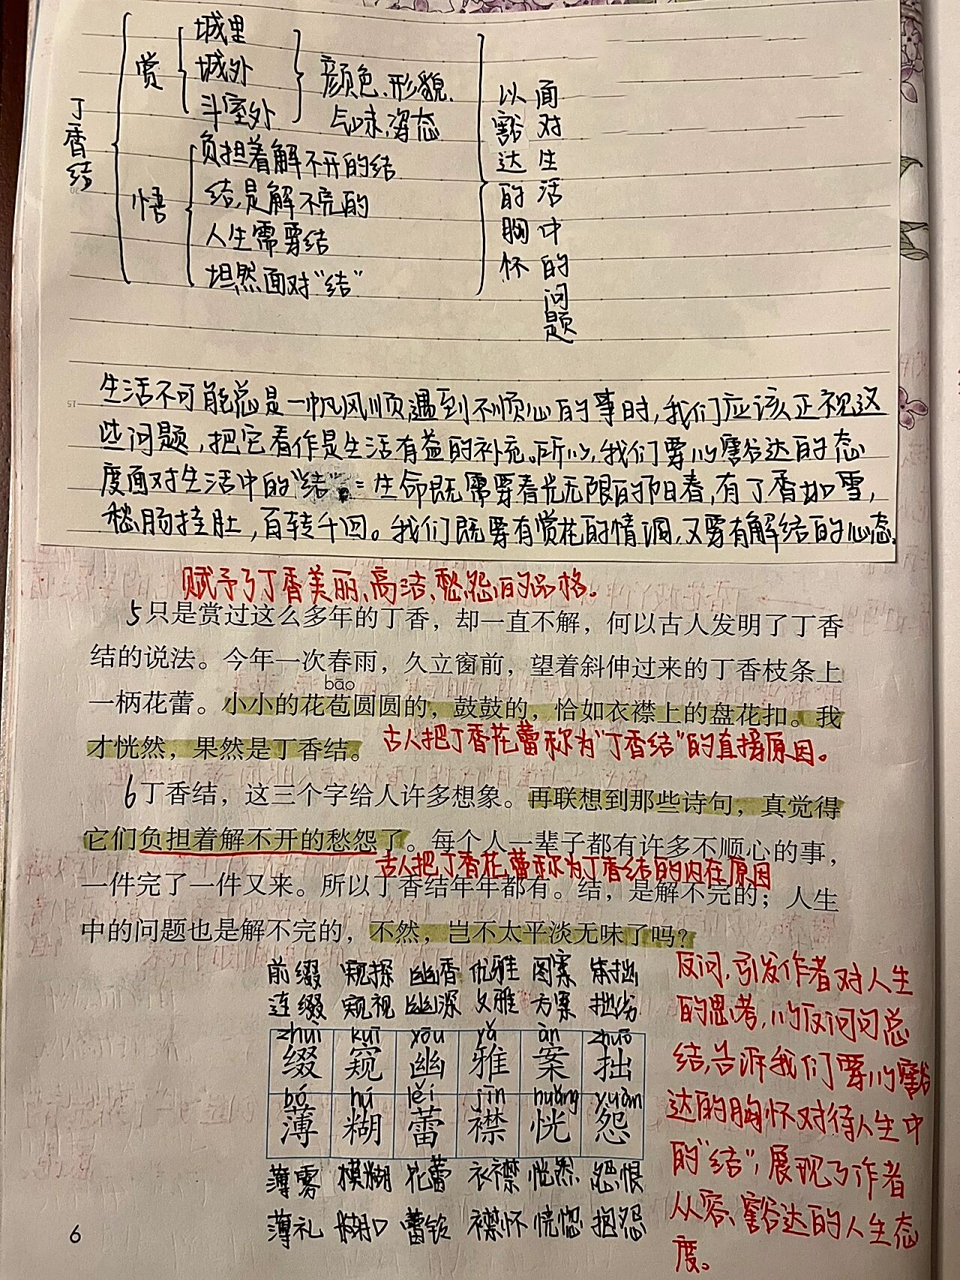 丁香结
赏
城里
城外
斗室外
颜色、形貌、
气味、姿态
悟
负担着解不开的结
结,是解不完的
人生需要结
坦然面对“结”
以豁达的胸怀
面对生活中的问题
生活不可能总是一帆风顺,遇到不顺心的事时,我们应该正视这
些问题,把它看作是生活有益的补充。所以,我们要以豁达的态
度面对生活中的“结”:生命既需要春光无限的阳春,有丁香如雪,
愁肠挂肚,百转千回。我们既要有赏花的情调,又要有解结的心态。
赋予了丁香美丽、高洁、愁怨的品格。
5只是赏过这么多年的丁香,却一直不解,何以古人发明了丁香
结的说法。今年一次春雨,久立窗前,望着斜伸过来的丁香枝条上
bāo
一柄花蕾。小小的花苞圆圆的,鼓鼓的,恰如衣襟上的盘花扣。我
才恍然,果然是丁香结。
古人把丁香花蕾称为“丁香结”的直接原因。
6丁香结,这三个字给人许多想象。再联想到那些诗句,真觉得
它们负担着解不开的愁怨了。每个人一辈子都有许多不顺心的事,
古人把丁香花蕾称为丁香结的内在原因
一件完了一件又来。所以丁香结年年都有。结,是解不完的;人生
中的问题也是解不完的,不然,岂不太平淡无味了吗?
前缀 窥探 幽香 优雅 图案 笨拙
连缀 窥视 幽深 文雅 方案 拙劣
zhuì kuī yōu yǎ àn zhuō
缀 窥 幽 雅 案 拙
bó hú lěi jīn huǎng yuàn
薄 糊 蕾 襟 恍 怨
薄雾 模糊 花蕾 衣襟 恍然 怨恨
薄礼 糊口 蕾铃 襟怀 恍惚 抱怨
反问,引发作者对人生
的思考,以反问问总
结,告诉我们要以豁
达的胸怀对待人生中
的“结”,展现了作者
从容、豁达的人生态
度。
6